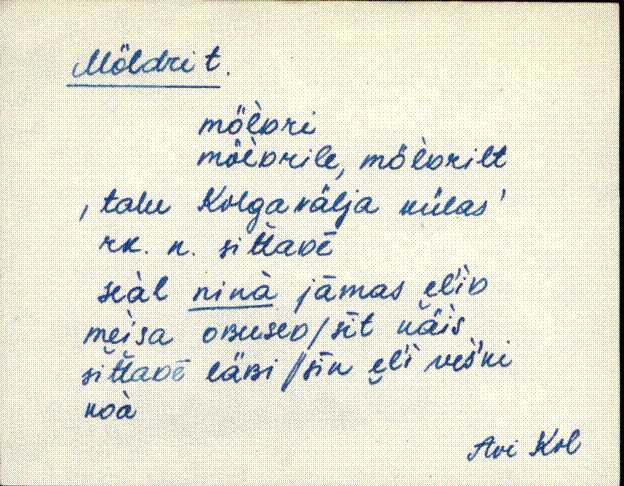 Möldri t.
möl̀dri
möl̀drile, möl̀drilt
, talu Kolgavälja külas'
rk. n. sit̆tavē
seàl ninà jāmas el̀id
mèisa obused/sīt kä̀is
sit̆tavē läbi //sīn el̀i veš'ki
koà
Avi Kol